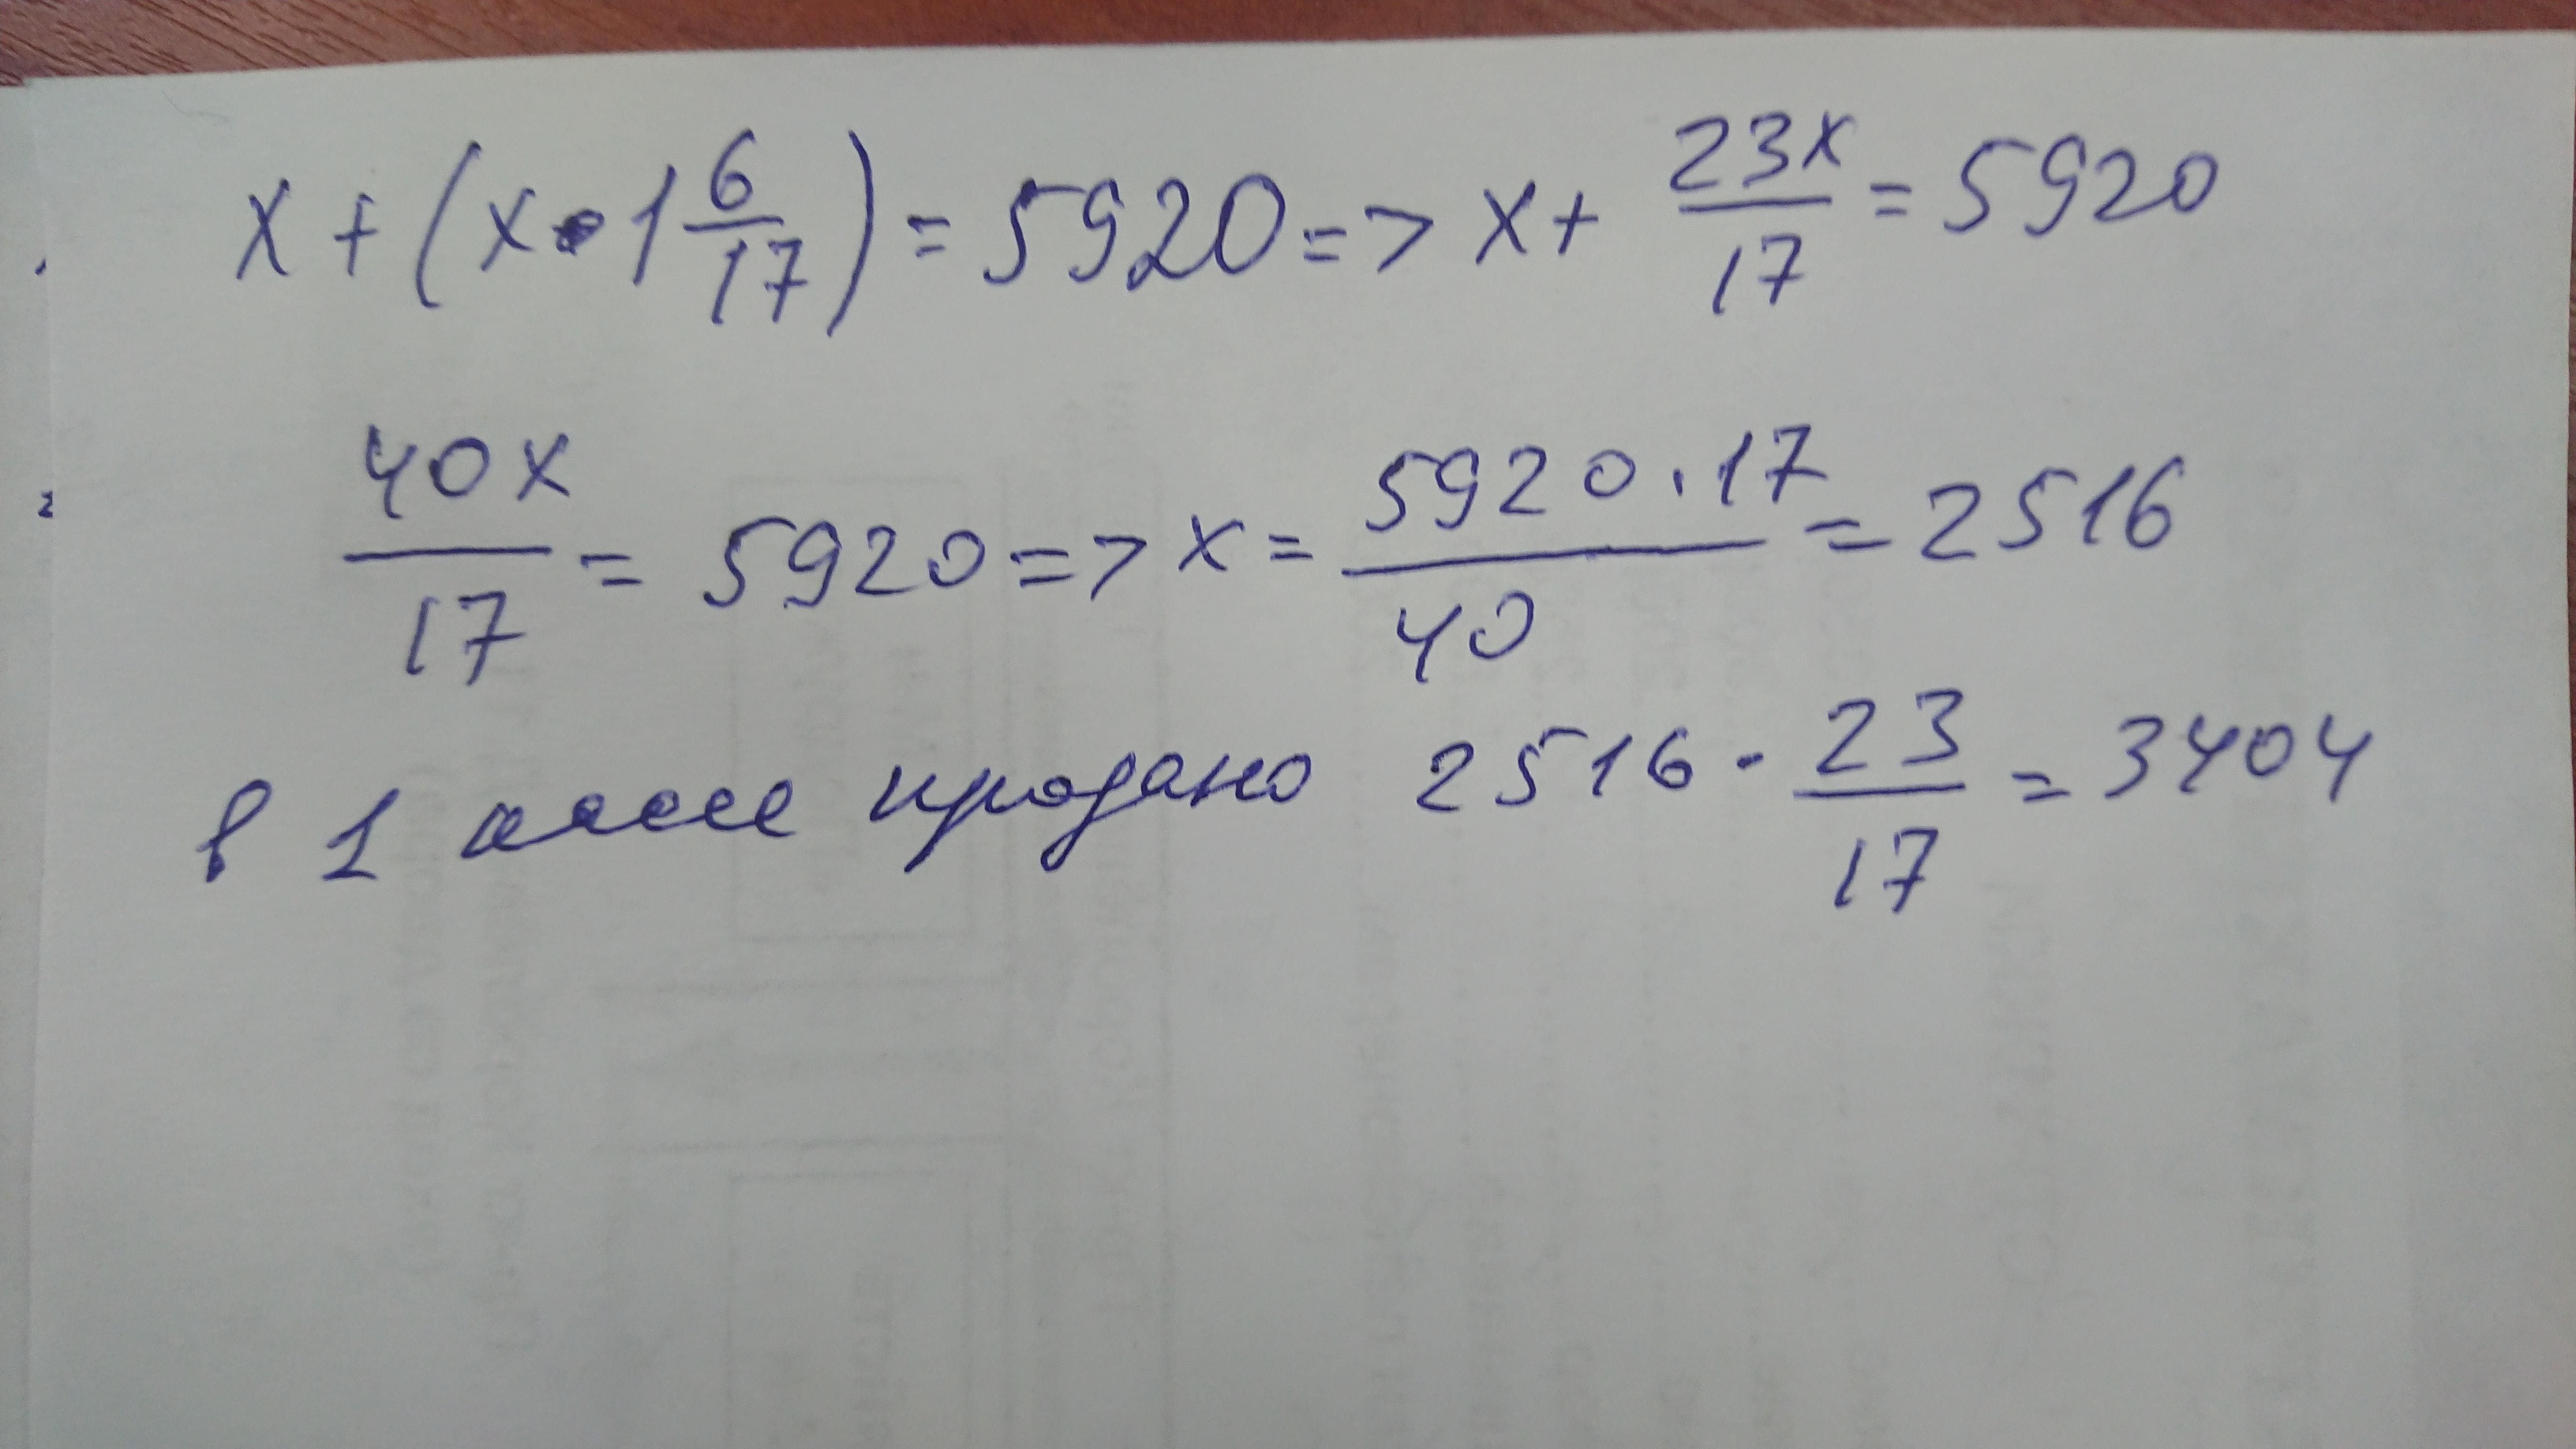 x + (x • 1 6/17) = 5920 => x + 23x/17 = 5920
40x/17 = 5920 => x = 5920 · 17/40 = 2516
в 1 кассе продано 2516 · 23/17 = 3404